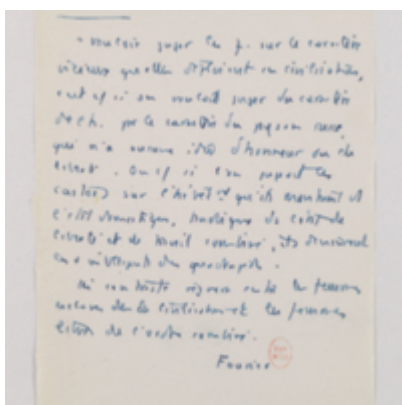 - vouloir juger les f. sur le caractère
vicieux qu'elles déploient en civilisation,
c'est c/ si on voulait juger du caractère
de l'h. par le caractère du paysan russe,
qui n'a aucune idée d'honneur ou de
liberté. Ou c/ si on jugeait les
castors sur l'hébét qu'ils montrent à
l'état domestique, tandis que de l'état de
liberté et de travail combiné, ils deviennent
les intelligents des quadrupèdes.
Même contraste régnera entre les femmes
esclaves de la civilisation et les femmes
libres de l'ordre combiné.
Fourier